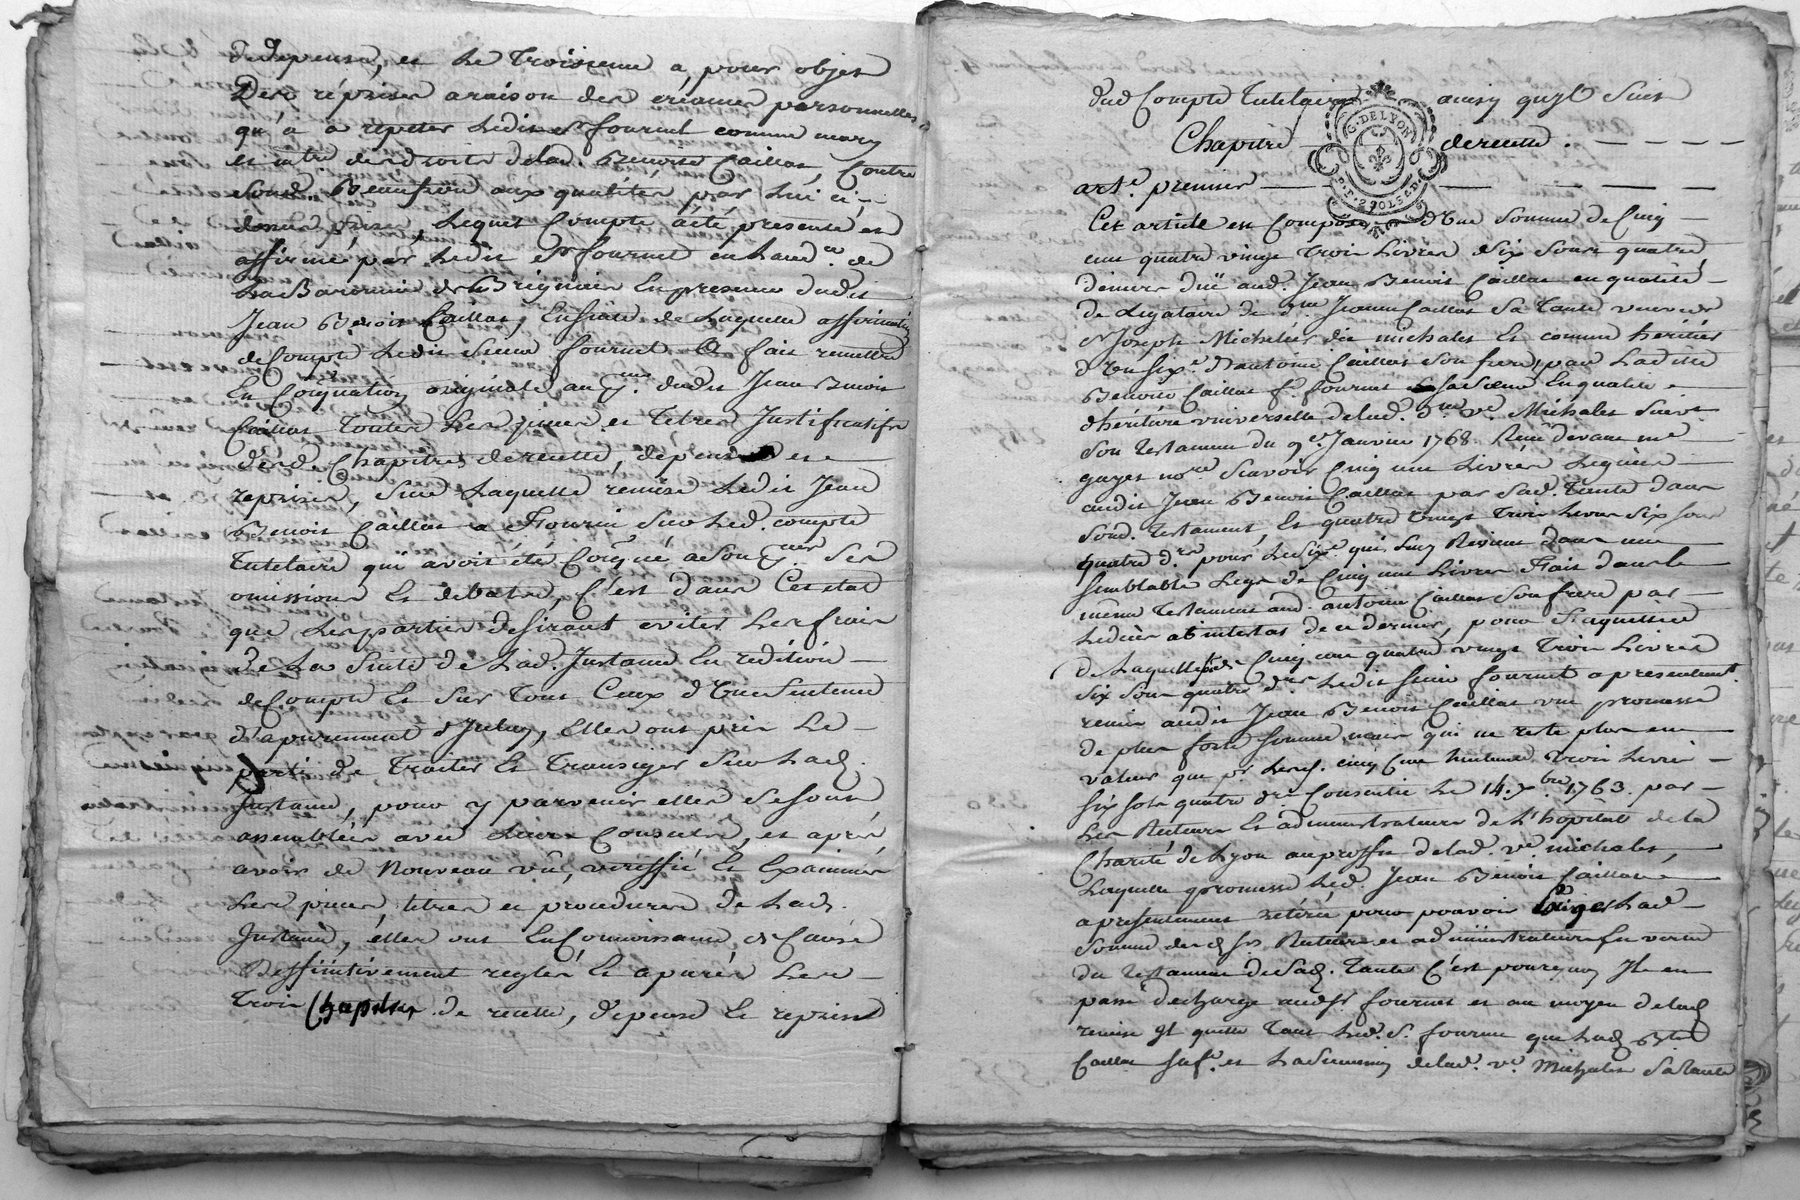 de depense, et le troisieme a, pour objet
Des reprises a raison des creances personnelles
qu'a a repeter ledit Sr fournel comme mary
et mtre des droits de lad. Benoite Caillat, Contre
sond. Beaufrere aux qualités par lui ci-
dessus prises, lequel Compte a été presenté et
affirmé par ledit Sr fournel en laud.ce de
la Baronnie de Brignais En presence dudit
Jean Benoit Caillat, Ensuite de laquelle affirmation
de Compte ledit Sieur fournel a fait remettre
En Coïquation originale au dudit Jean Benoit
Caillat Toutes les pieces et titres Justificatifs
desd. Chapitres de recette, depense et
reprises, sur laquelle remise ledit Jean
Benoit Caillat a fourni sur led. compte
Tutelaire qui avoit été Coïqué a son ses
omissions et debats, C'est dans Cet etat
que les parties desirant eviter les frais
de la suite de lad. Instance En redition
de Compte et sur tout Ceux d'une Sentence
d'apurement d'Iceluy, elles ont pris le
parti de traiter et transiger sur lad.
Instance, pour y parvenir elles se sont
assemblées avec leurs Conseils, et après
avoir de Nouveau vû, veriffié et Examiné
les pieces, titres et procedures de lad.
Instance, elles ont En Connoissance de Cause
Deffinitivement reglés et apurés les
trois Chapitres de recette, depense et reprise
dud Compte tutelaire ainsy qu'il suit
G. DE LYON
Chapitre de recette.
2 SOLS
art.e premier
Cet article est Composé d'une somme de Cinq
cent quatre vingt trois livres six sous quatre
deniers duë aud. Jean Benoit Caillat en qualité
de legataire de d.me Jeanne Caillat sa tante veuve de
Sr Joseph Michalet dit michalet et comme heritier
d'un six.e d'antoine Caillat son frere, par ladite
Benoite Caillat f.e fournel sa soeur En qualité
d'héritiere universelle de lad. d.me v.e Michalet suivt
son testament du 9.e Janvier 1768 Reçu devant me
guyot no.re sçavoir Cinq cent livres leguées
audit Jean Benoit Caillat par sad. tante dans
sond. testament, et quatre vingt trois livres six sous
quatre d.rs pour le six.e qui luy Revient dans un
semblable legs de Cinq cent livres fait dans le
même testament aud. antoine Caillat son frere par
le deces ab intestat de ce dernier, pour l'acquittement
de laquelle Cinq cent quatre vingt trois livres
six sous quatre d.rs ledit sieur fournel a presentement
remis audit Jean Benoit Caillat une promesse
de plus forte somme mais qui ne reste plus en
valeur que pr lesd. cinq cent huitante trois livres
six sols quatre drs Consentie le 14. 1763. par
les Recteurs et administrateurs de l'hôpital de la
Charité de Lyon au proffit de lad. v.e michalet,
laquelle promesse led. Jean Benoit Caillat
a presentement retiré pour pouvoir Exiger lad
somme desd srs Recteurs et administrateurs En vertu
du testament de sad. tante C'est pourquoy Il en
passe décharge audt Sr fournel et au moyen de lad
remise Il quitte tant led. S. fournel que lad Bte
Caillat sa f.e et la succession de lad. v.e Michalet sa tante